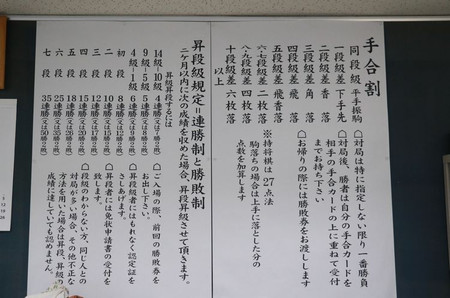 手合割
同段級 平手振駒
一段級差 下手先
二段級差 香落
三段級差 角落
四段級差 飛落
五段級差 飛香落
六七段級差 二枚落
八九段級差 四枚落
十段級差以上 六枚落
〇対局は特に指定しない限り一番勝負
〇対局後、勝者は自分の手合カードを
相手の手合カードの上に重ねて受付
までお持ち下さい
〇お帰りの際には勝敗券をお渡しします
※持将棋は27点法
駒落ちの場合は上手に落とした分の
点数を加算します
昇段級規定=連勝制と勝敗制
二ヶ月以内に次の成績を収めた場合、昇段昇級させて頂きます。
昇級昇段するには
14級~10級 4連勝
9級~5級 5連勝
4級~1級 6連勝
初段 8連勝又は12勝2敗
二段 10連勝
三段 12連勝
四段 15連勝
五段 18連勝
六段 25連勝
七段 35連勝又は50勝
〇ご入場の際、前回の勝敗券を
お出し下さい。
〇昇段級者にはもれなく認定証を
さしあげます。
〇昇段者には免状申請書の受付を
致します。
〇段級のわからない方、同じ人との
対局が多い場合、その他不正な
方法を用いた場合は昇段、昇級の
成績に達していても認めません。